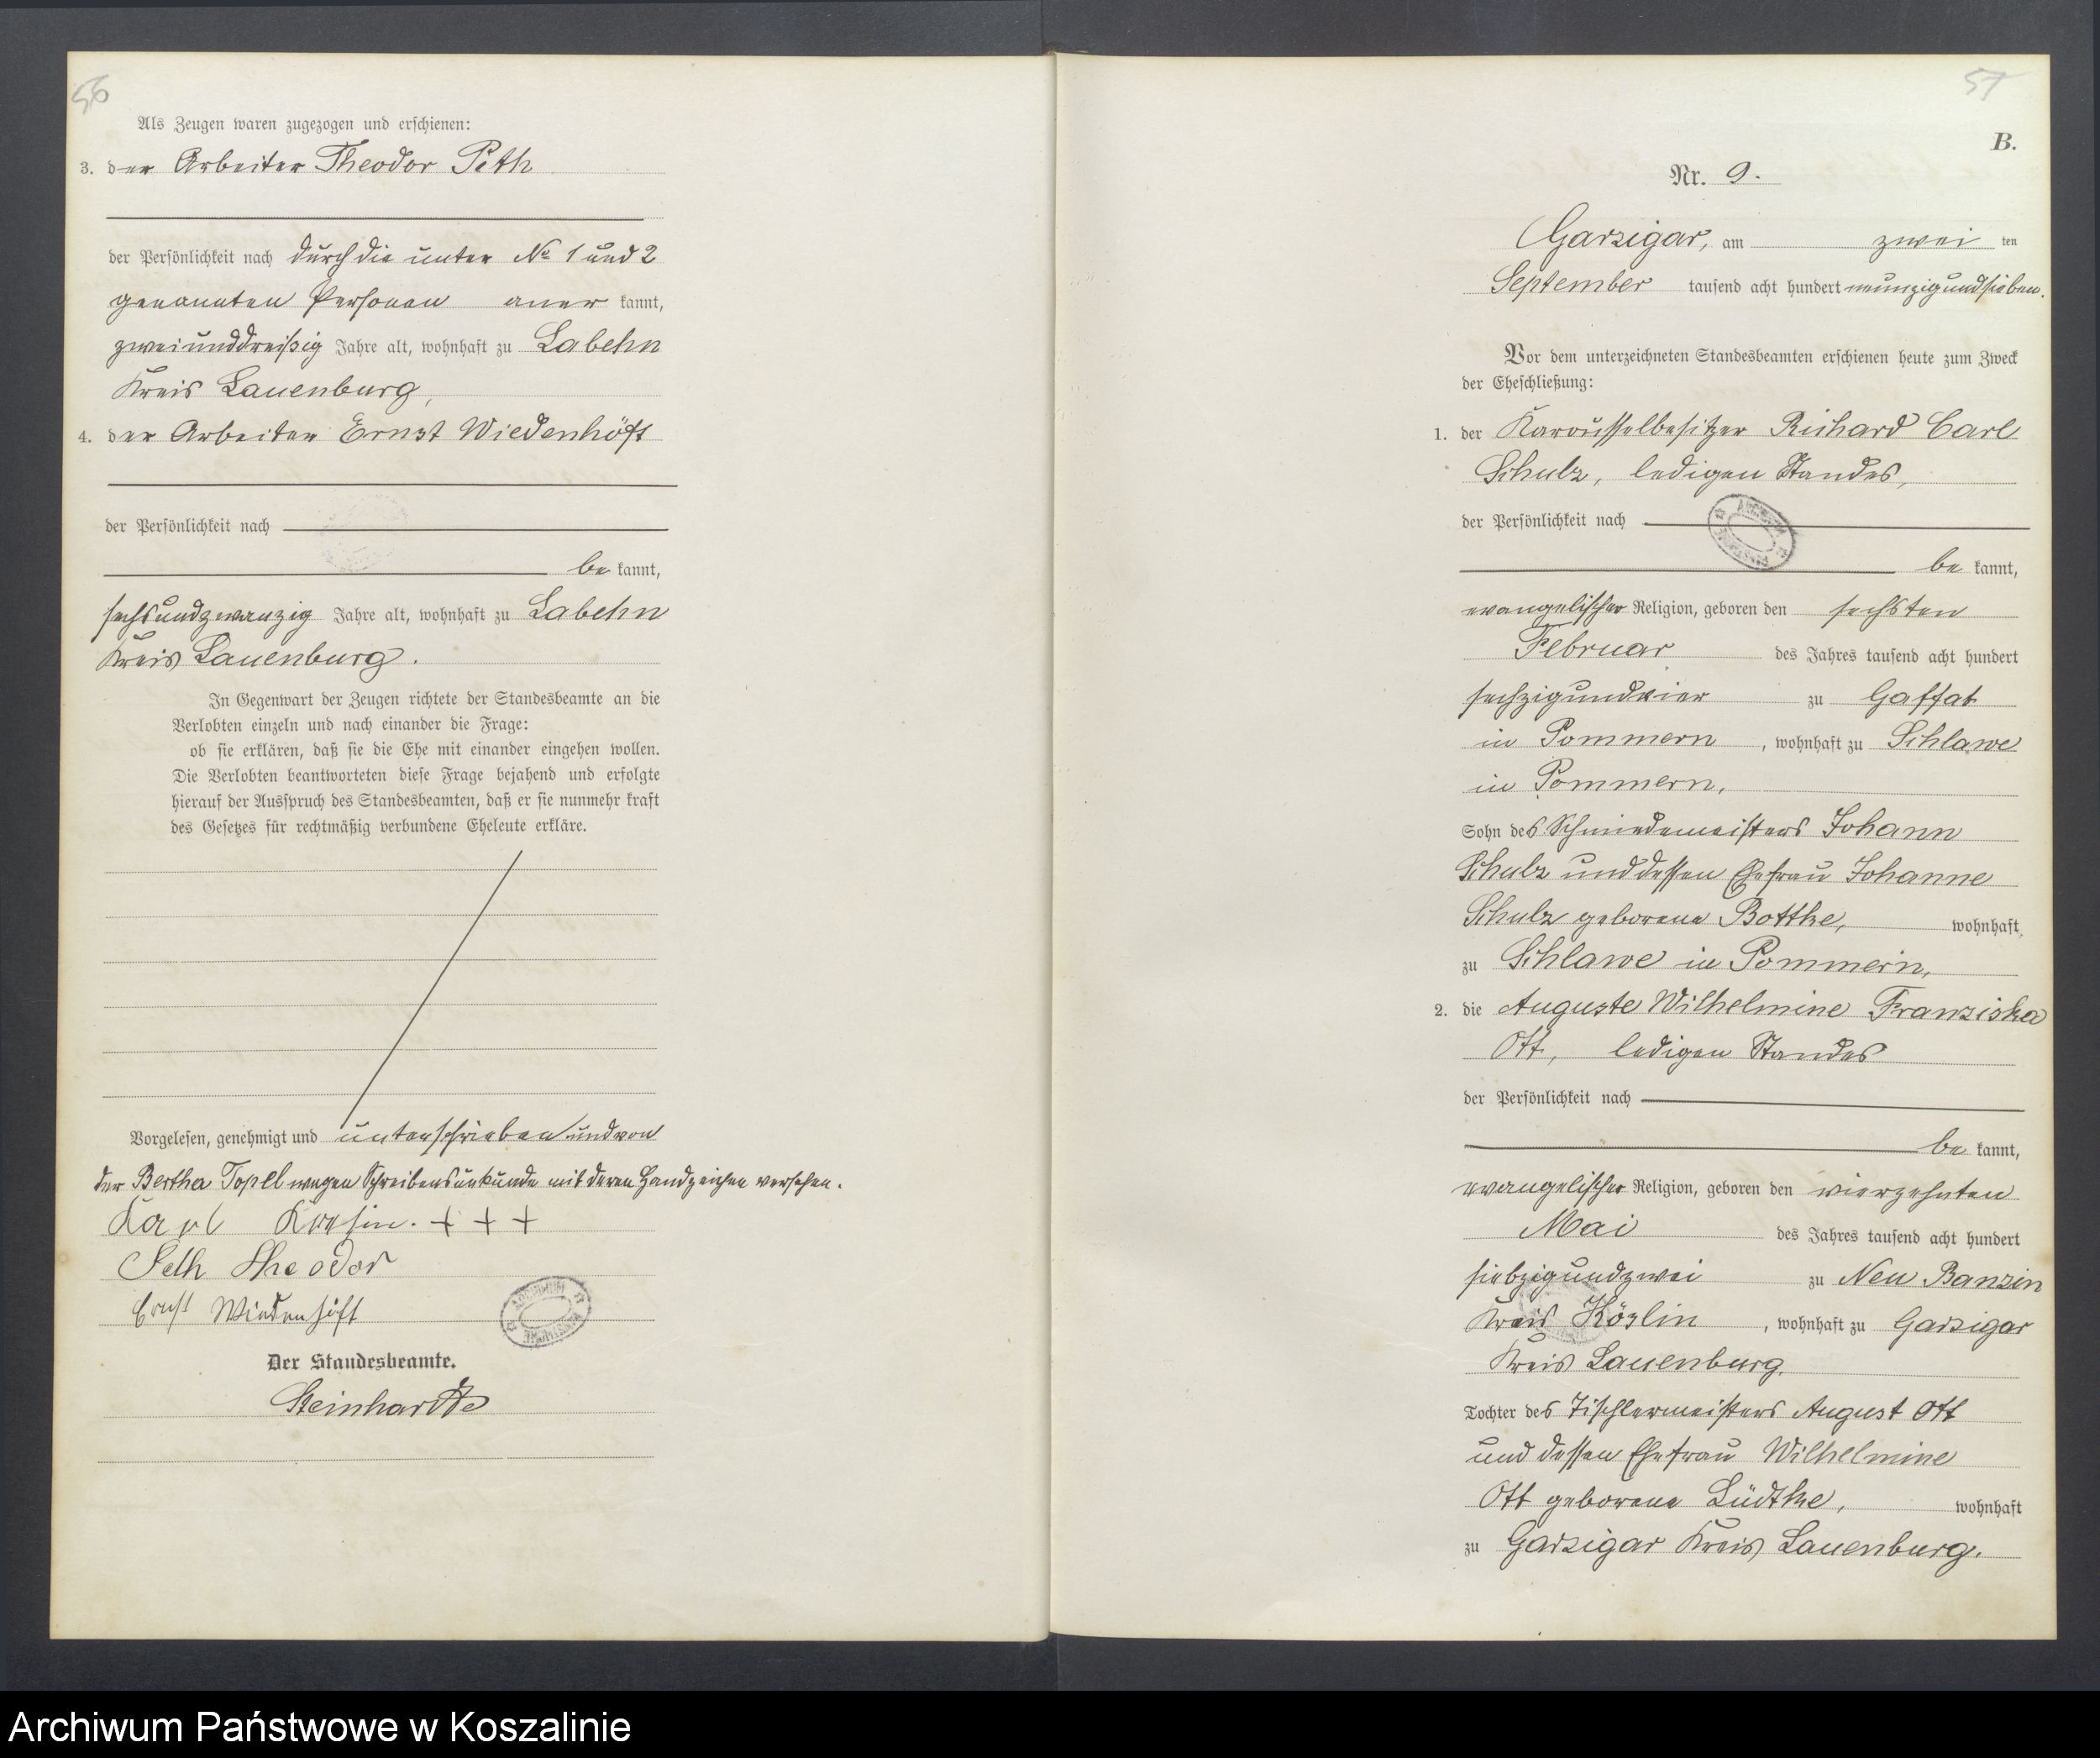 56
Als Zeugen waren zugezogen und erschienen:
3. der Arbeiter Theodor Peth
der Persönlichkeit nach durch die unter No 1 und 2
genannten Personen aner kannt,
zweiunddreißig Jahre alt, wohnhaft zu Labehn
Kreis Lauenburg,
4. der Arbeiter Ernst Wiedenhöft
der Persönlichkeit nach
be kannt,
sechsundzwanzig Jahre alt, wohnhaft zu Labehn
Kreis Lauenburg.
In Gegenwart der Zeugen richtete der Standesbeamte an die
Verlobten einzeln und nach einander die Frage:
ob sie erklären, daß sie die Ehe mit einander eingehen wollen.
Die Verlobten beantworteten diese Frage bejahend und erfolgte
hierauf der Ausspruch des Standesbeamten, daß er sie nunmehr kraft
des Gesetzes für rechtmäßig verbundene Eheleute erkläre.
Vorgelesen, genehmigt und unterschrieben und von
der Bertha Topel wegen Schreibensunkunde mit deren Handzeichen versehen.
Karl Kresin. + + +
Peth Theodor
Ernst Wiedenhöft
Der Standesbeamte.
Steinhardt
57
B.
Nr. 9.
Garzigar, am zwei ten
September tausend acht hundert neunzigundsieben.
Vor dem unterzeichneten Standesbeamten erschienen heute zum Zweck
der Eheschließung:
1. der Karousselbesitzer Richard Carl
Schulz, ledigen Standes,
der Persönlichkeit nach
be kannt,
evangelischer Religion, geboren den sechsten
Februar des Jahres tausend acht hundert
sechzigundvier zu Gaffat
in Pommern, wohnhaft zu Schlawe
in Pommern,
Sohn des Schmiedemeisters Johann
Schulz und dessen Ehefrau Johanne
Schulz geborene Botthe, wohnhaft
zu Schlawe in Pommern,
2. die Auguste Wilhelmine Franziska
Ott, ledigen Standes
der Persönlichkeit nach
be kannt,
evangelischer Religion, geboren den vierzehnten
Mai des Jahres tausend acht hundert
siebzigundzwei zu Neu Banzin
Kreis Köslin, wohnhaft zu Garzigar
Kreis Lauenburg,
Tochter des Tischlermeisters August Ott
und dessen Ehefrau Wilhelmine
Ott geborene Lüdtke, wohnhaft
zu Garzigar Kreis Lauenburg.
Archiwum Państwowe w Koszalinie